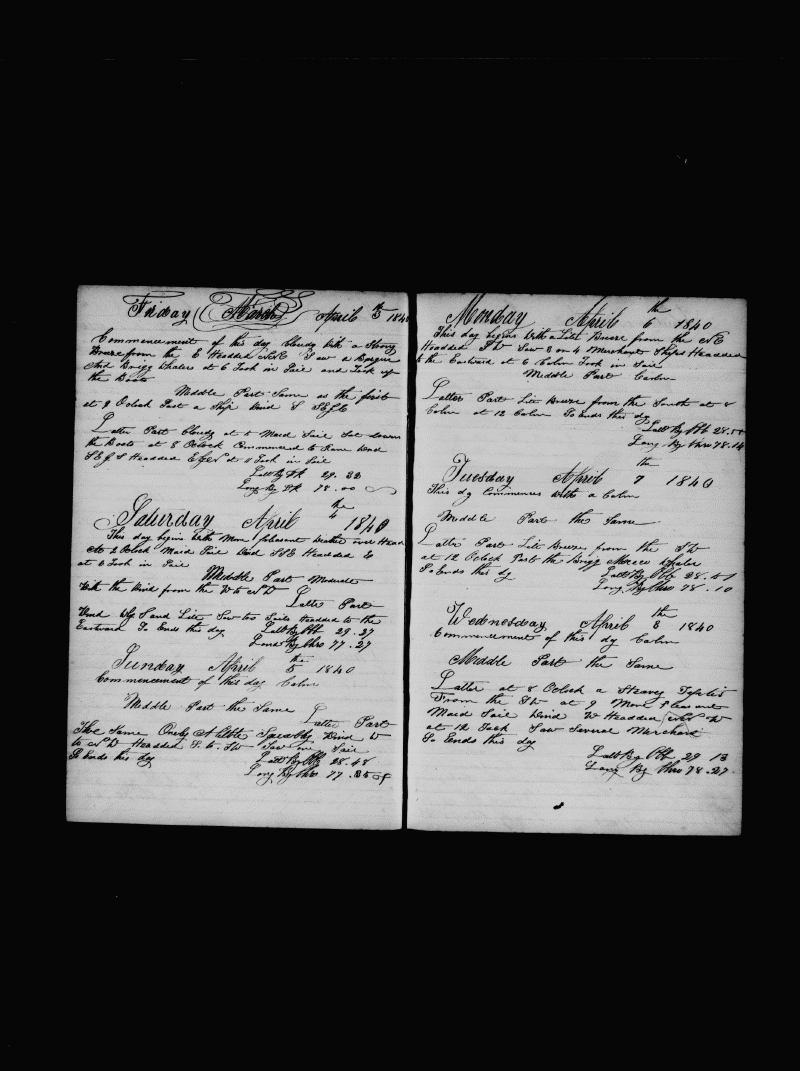 Friday March April 3 1840
Commencement of this day Cloudy With a Strong
Breeze from the E Headded NNE Saw a Barque
And Brigg Whalers at 6 Took in Sail and Took up
the Boats
Middle Part Same as the first
at 9 Oclock Past a Ship Wind S SEbE
Latter Part Cloudy at 5 Maid Sail Sot down
the Boats at 8 Oclock Commenced to Rane Wind
Headded at 11 Took in Sail
Latt By 29. 32
Long By 78. 00
Saturday April the 4 1840
This day begins With More pleasant Wether over Head
At 2 Oclock Maid Sail Wind SSE Headded E
at 6 Took in Sail
Middle Part Moderate
With the Wind from the W to NW
Latter Part
Wind Wly S and Lite Saw too Sails Headded to the
Eastward So Ends this day Latt By Ob 29. 27
Lond By Chro 77. 27
Sunday April the 5 1840
Commencement of this day Calm
Middle Part the Same
Latter Part
The Same Onely A little Wind W
to NW Headded S. to. SW Saw one Sail
So Ends this day Latt By Ob 28. 48
Long By Chro 77. 35
Monday April the 6 1840
This day begins With a Lite Breeze from the NE
Headded SW Saw 3 or 4 Merchant Ships Headded
to the Eastward at 6 Calm Took in Sail
Middle Part Calm
Latter Part Lite Breeze from the South at 8
Calm at 12 Calm So Ends this dy
Latt By Ob 28.
Long By Chro 78. 14
Tuesday April the 7 1840
This dy Commences With a Calm
Middle Part the Same
Latter Part Lite Breeze from the SW
at 12 Oclock Past the Brigg Whaler
So Ends this dy Latt By Ob 28. 51
Long By Chro 78. 10
Wednesday April the 8 1840
Commencement of this dy Calm
Middle Part the Same
Latter at 8 Oclock a Heavey
From the SW at 9 More Pleasant
Maid Sail Wind W Headded
at 12 Tack Saw Several Merchant
So Ends this dy
Latt By Ob 29 13
Long By Chro 78. 27